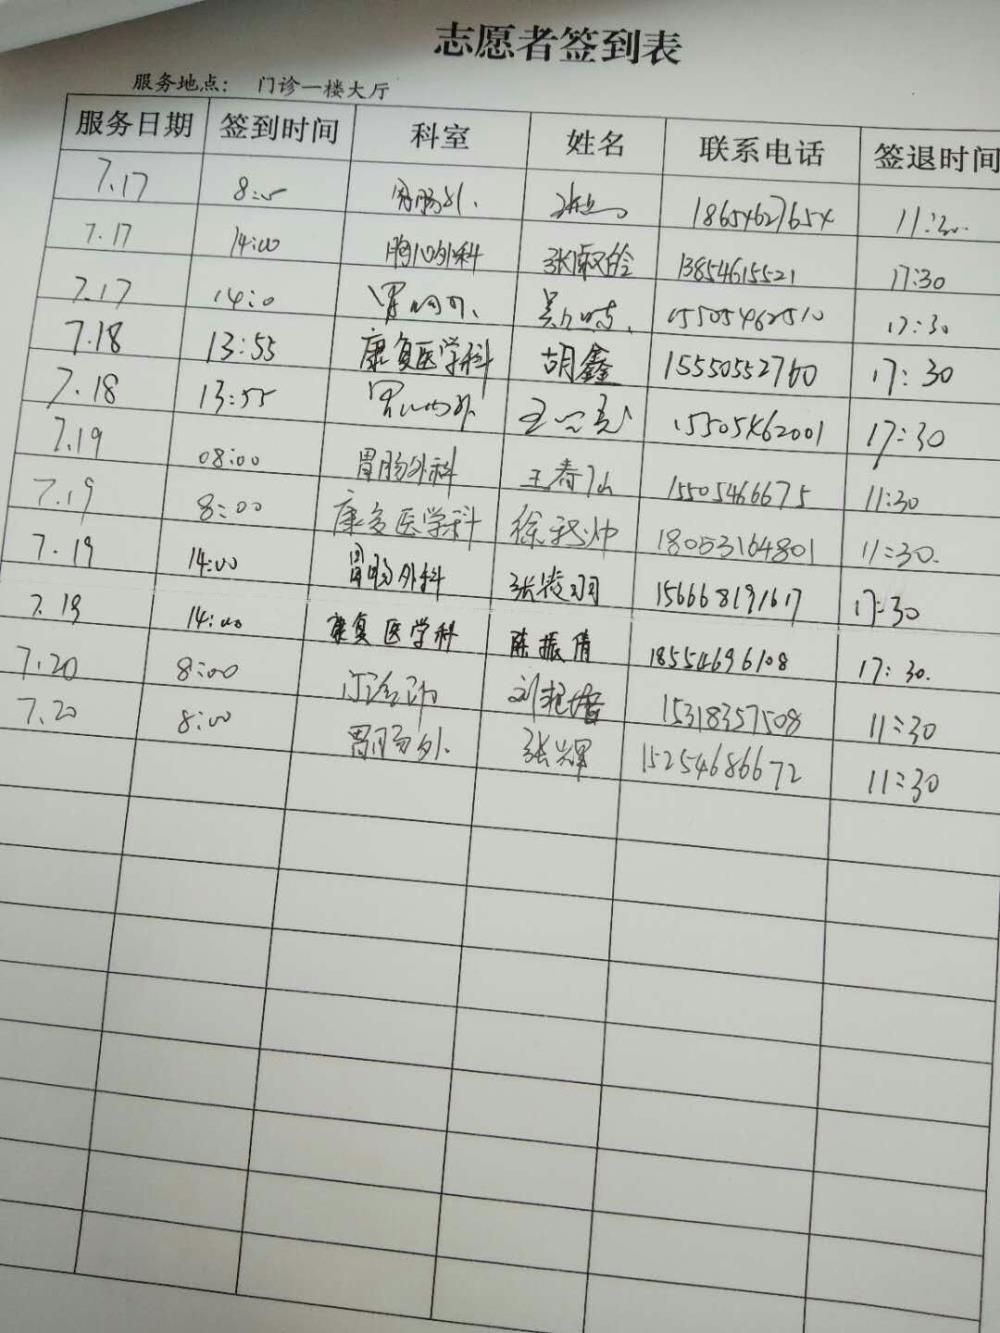 志愿者签到表
服务地点: 门诊一楼大厅
服务日期 签到时间 科室 姓名 联系电话 签退时间
7.17 胃肠外. 18654627654 11:30.
7.17 14:00 胸心外科 13854615521 17:30
7.17 14:0 15505462510 17:30
7.18 13:55 康复医学科 胡鑫 15550552760 17:30
7.18 13:55 15505462001 17:30
7.19 08:00 胃肠外科 王春 15505466675 11:30
7.19 8:00 康复医学科 徐 18053164801 11:30.
7.19 14:00 胃肠外科 张凌羽 156668191617 17:30
7.19 14:00 康复医学科 陈振倩 18554696108 17:30.
7.20 8:00 刘 15318357508 11:30
7.20 8:00 胃肠外. 张辉 15254686672 11:30